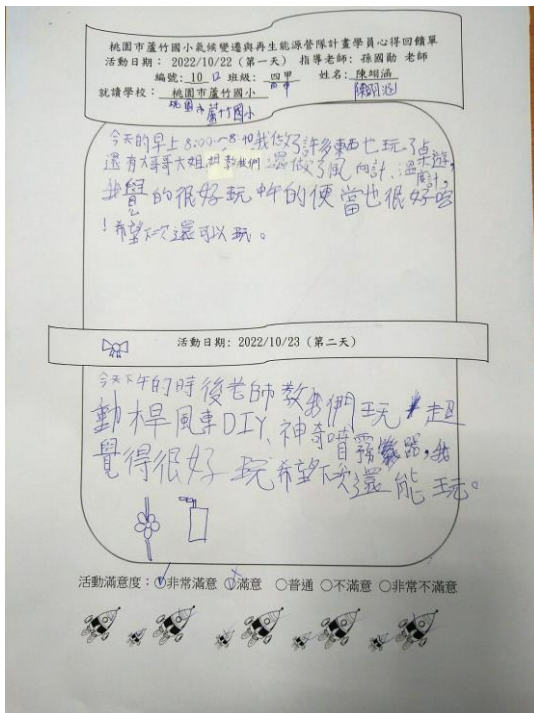 桃園市蘆竹國小氣候變遷與再生能源營隊計畫學員心得回饋單
活動日期: 2022/10/22 (第一天) 指導老師: 孫國勛 老師
編號: 10 口 班級: 四甲 姓名: 陳翊涵
四甲 陳翊涵
就讀學校: 桃園市蘆竹國小
桃園市蘆竹國小
今天的早上8:00~8:40我做了許多東西也玩了桌遊,
還有大哥哥大姐 教我們 還做了風向計、溫 計,
我覺的很好玩中午的便當也很好吃
!希望下次還可以玩。
活動日期: 2022/10/23 (第二天)
今天下午的時後老師教我們玩 超
動桿風車DIY、神奇噴霧器,我
覺得很好玩希望下次還能玩。
活動滿意度: ○非常滿意 ○滿意 ○普通 ○不滿意 ○非常不滿意